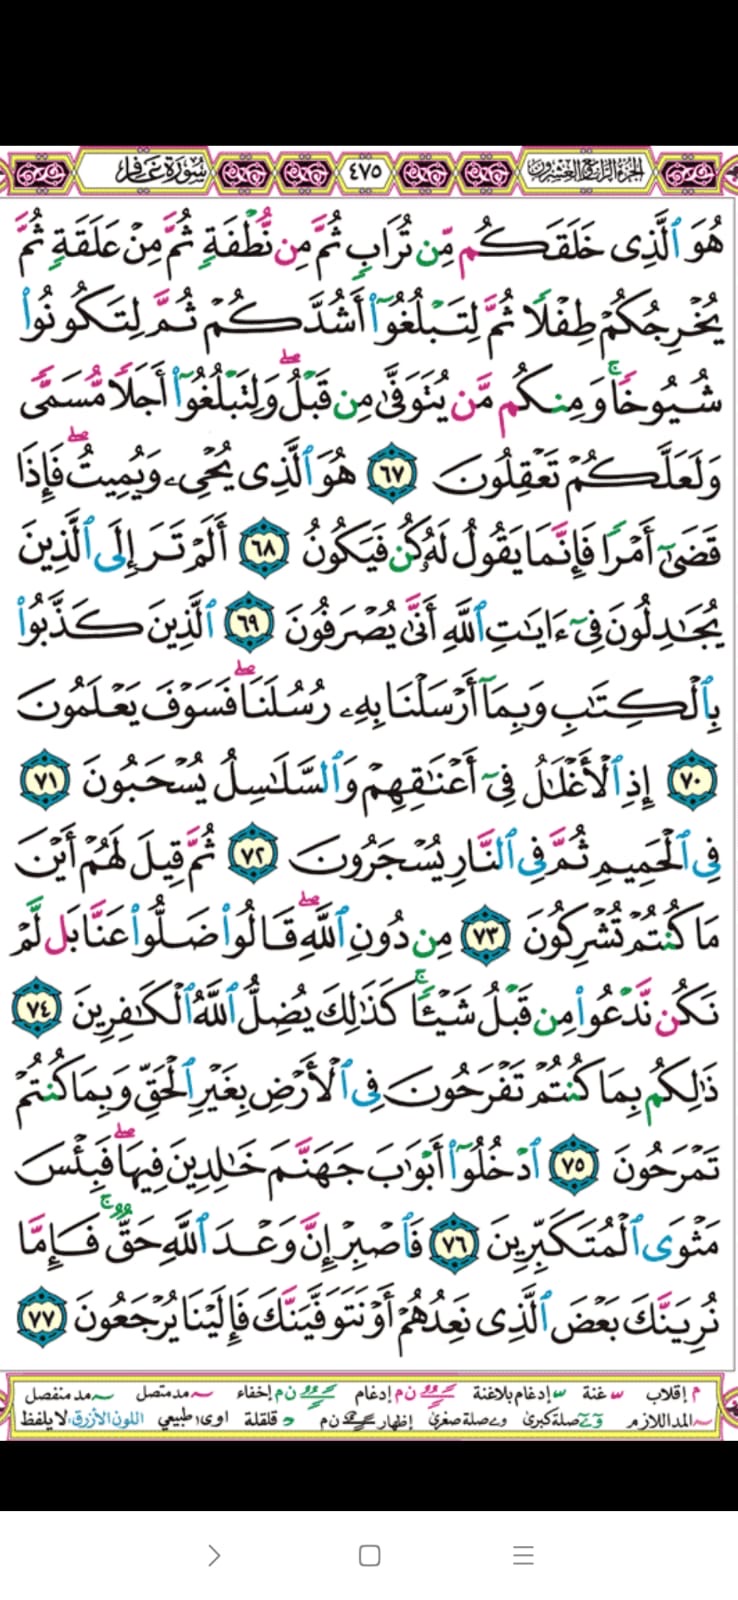 الجزء الرابع والعشرون ٤٧٥ سورة غافر
هُوَ ٱلَّذِى خَلَقَكُم مِّن تُرَابٍ ثُمَّ مِن نُّطْفَةٍ ثُمَّ مِنْ عَلَقَةٍ ثُمَّ
يُخْرِجُكُمْ طِفْلًا ثُمَّ لِتَبْلُغُوٓا۟ أَشُدَّكُمْ ثُمَّ لِتَكُونُوا۟
شُيُوخًا ۚ وَمِنكُم مَّن يُتَوَفَّىٰ مِن قَبْلُ ۖ وَلِتَبْلُغُوٓا۟ أَجَلًا مُّسَمًّى
وَلَعَلَّكُمْ تَعْقِلُونَ ٦٧ هُوَ ٱلَّذِى يُحْىِۦ وَيُمِيتُ ۖ فَإِذَا
قَضَىٰٓ أَمْرًا فَإِنَّمَا يَقُولُ لَهُۥ كُن فَيَكُونُ ٦٨ أَلَمْ تَرَ إِلَى ٱلَّذِينَ
يُجَـٰدِلُونَ فِىٓ ءَايَـٰتِ ٱللَّهِ أَنَّىٰ يُصْرَفُونَ ٦٩ ٱلَّذِينَ كَذَّبُوا۟
بِٱلْكِتَـٰبِ وَبِمَآ أَرْسَلْنَا بِهِۦ رُسُلَنَا ۖ فَسَوْفَ يَعْلَمُونَ
٧٠ إِذِ ٱلْأَغْلَـٰلُ فِىٓ أَعْنَـٰقِهِمْ وَٱلسَّلَـٰسِلُ يُسْحَبُونَ ٧١
فِى ٱلْحَمِيمِ ثُمَّ فِى ٱلنَّارِ يُسْجَرُونَ ٧٢ ثُمَّ قِيلَ لَهُمْ أَيْنَ
مَا كُنتُمْ تُشْرِكُونَ ٧٣ مِن دُونِ ٱللَّهِ ۖ قَالُوا۟ ضَلُّوا۟ عَنَّا بَل لَّمْ
نَكُن نَّدْعُوا۟ مِن قَبْلُ شَيْـًٔا ۚ كَذَٰلِكَ يُضِلُّ ٱللَّهُ ٱلْكَـٰفِرِينَ ٧٤
ذَٰلِكُم بِمَا كُنتُمْ تَفْرَحُونَ فِى ٱلْأَرْضِ بِغَيْرِ ٱلْحَقِّ وَبِمَا كُنتُمْ
تَمْرَحُونَ ٧٥ ٱدْخُلُوٓا۟ أَبْوَٰبَ جَهَنَّمَ خَـٰلِدِينَ فِيهَا ۖ فَبِئْسَ
مَثْوَى ٱلْمُتَكَبِّرِينَ ٧٦ فَٱصْبِرْ إِنَّ وَعْدَ ٱللَّهِ حَقٌّ ۚ فَإِمَّا
نُرِيَنَّكَ بَعْضَ ٱلَّذِى نَعِدُهُمْ أَوْ نَتَوَفَّيَنَّكَ فَإِلَيْنَا يُرْجَعُونَ ٧٧
م إقلاب غنة إدغام بلاغنة ن م إدغام ن م إخفاء مد متصل مد منفصل
المد اللازم صلة كبرى صلة صغرى إظهار ن م قلقلة اوى طبيعي اللون الأزرق لا يلفظ